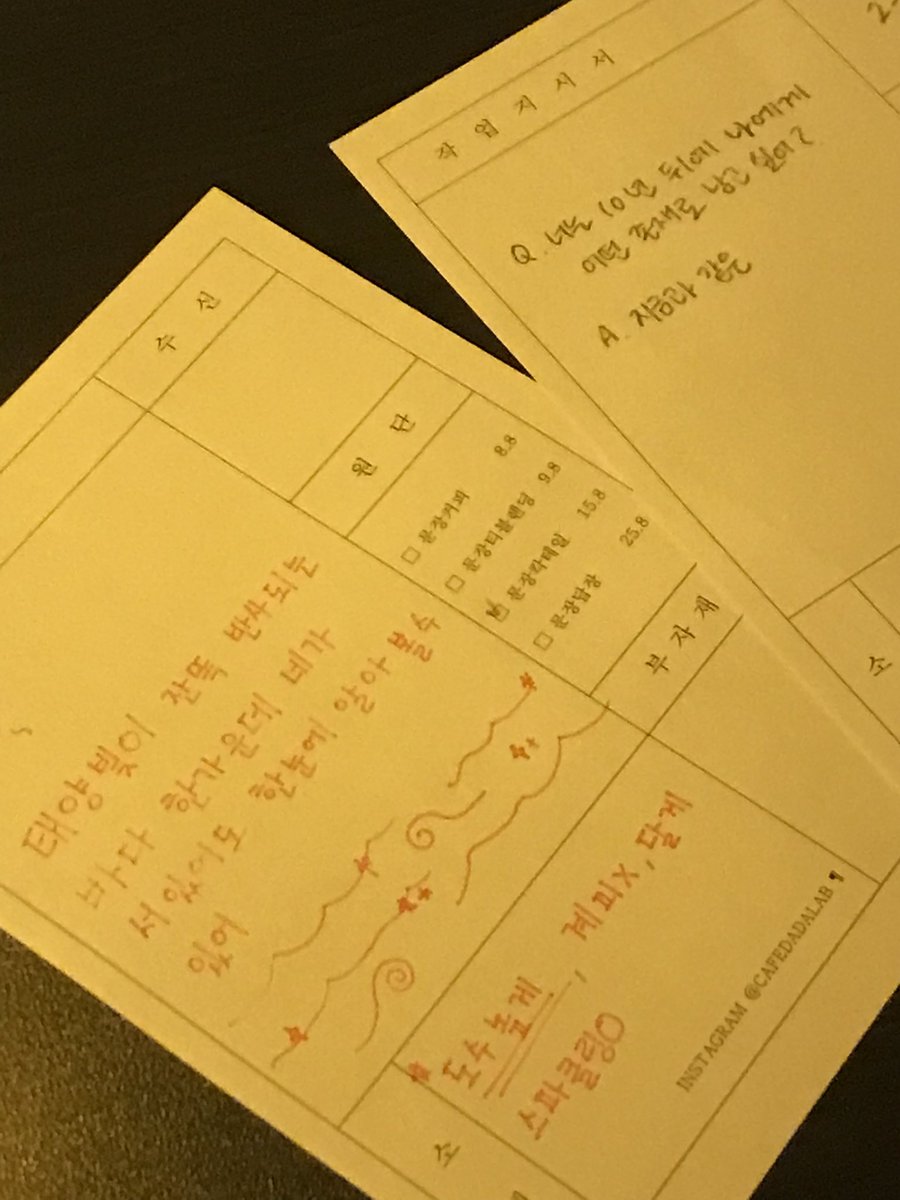 작업지시서
Q. 너는 10년 뒤에 나에게
어떤 존재로 남고 싶어?
A. 지금과 같은
수신
원단
□ 문장커피 8.8
□ 문장티블렌딩 9.8
☑ 문장칵테일 15.8
□ 문장답장 25.8
부자재
태양빛이 잔뜩 반사되는
바다 한가운데 네가
서있어도 한눈에 알아 볼 수
있어
도수 높게, 계피X, 달게
스파클링O
INSTAGRAM @CAFEDADALAB
소
소